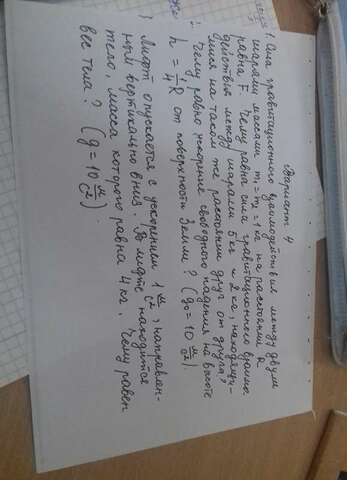 Вариант 4
1. Сила гравитационного взаимодействия между двумя
шарами массами m₁ = m₂ = 1 кг на расстоянии R
равна F. Чему равна сила гравитационного взаимо
действия между шарами 5 кг и 2 кг, находящи-
мися на таком же расстоянии друг от друга?
Чему равно ускорение свободного падения на высоте
h = 1/4 R от поверхности Земли? (g₀ = 10 м/с²)
Лифт опускается с ускорением 1 м/с², направлен-
ным вертикально вниз. В лифте находится
тело, масса которого равна 4 кг. Чему равен
вес тела? (g = 10 м/с²)